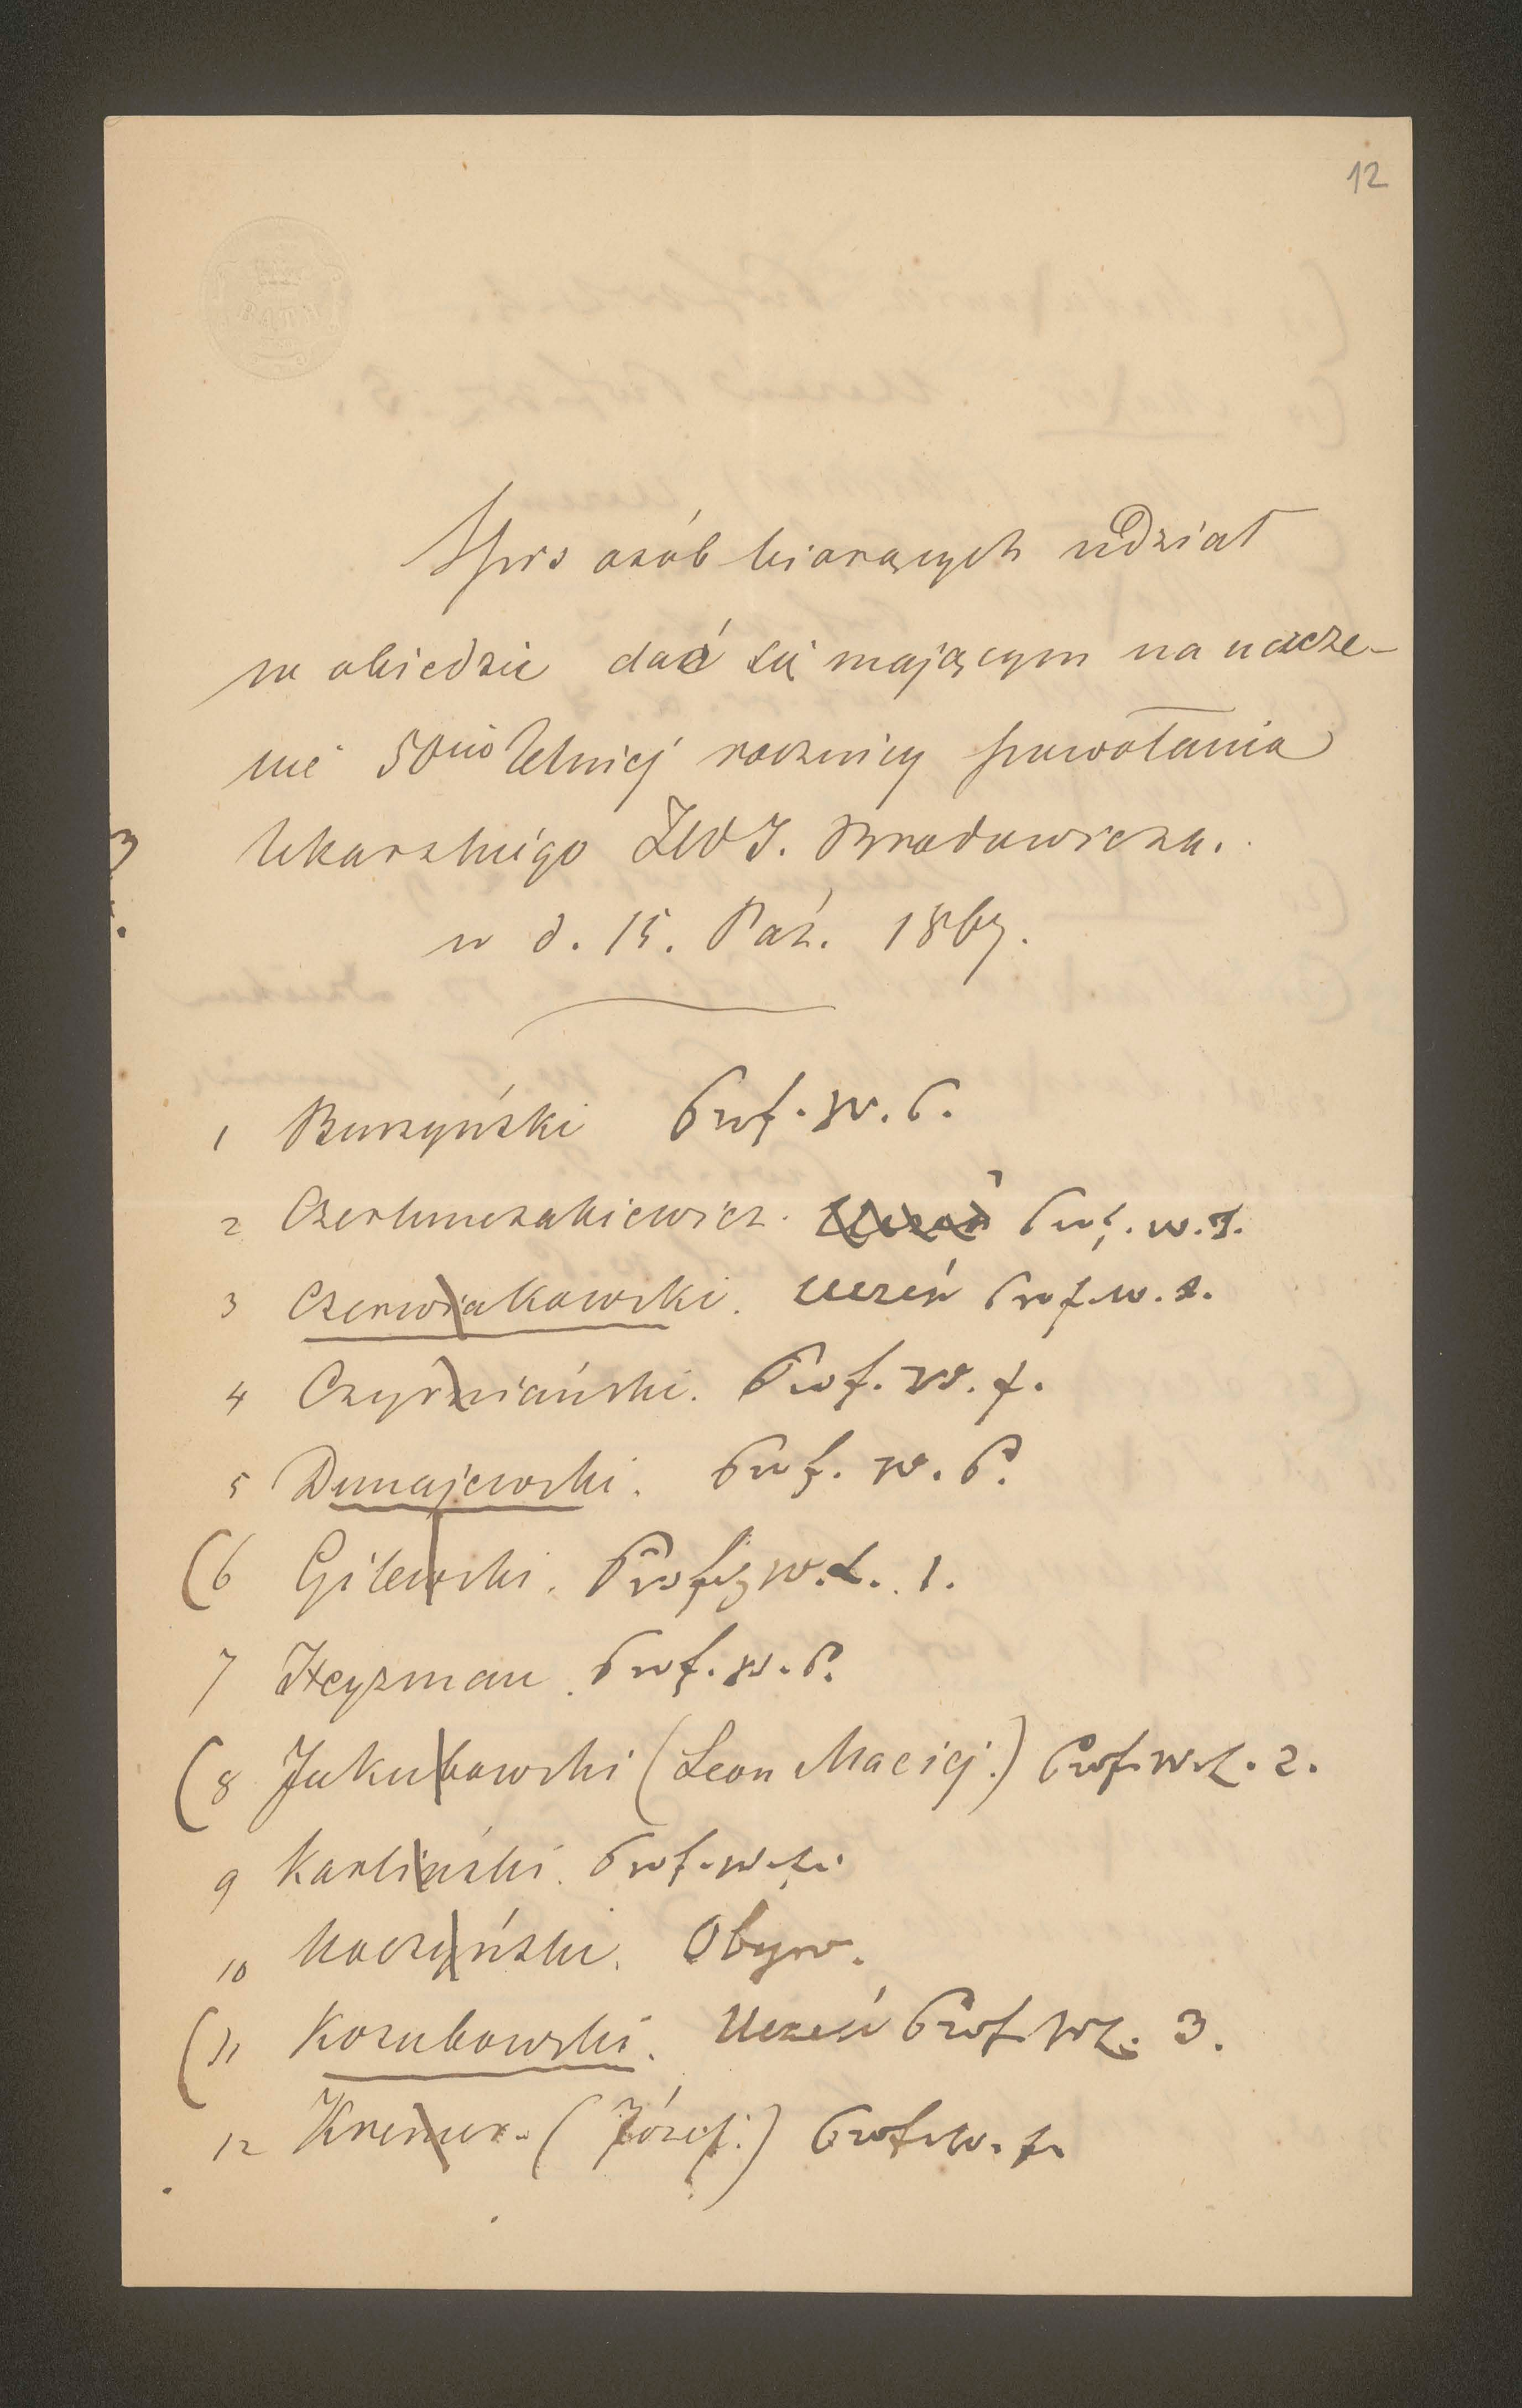 12
Spis osób biorących udział
w obiedzie dać się mającym na uczcze-
nie 50cio letniej rocznicy powołania
lekarskiego J. Brodowicza.
w d. 15. Paź. 1867.
1 Burzyński Prof. W. P.
2 Czerlunczakiewicz. Uczeń Prof. w. T.
3 Czerwiakowski. Uczeń Prof. w. f.
4 Czyrniański. Prof. W. f.
5 Dunajewski. Prof. W. P.
(6 Gilewski. Prof. W. L. 1.
7 Heyzman. Prof. W. P.
(8 Jakubowski (Leon Maciej.) Prof. W. L. 2.
9 Karliński. Prof. W. f.
10 Koczyński. Obyw.
(11 Kozubowski. Uczeń Prof. W. L. 3.
12 Kremer (Józef.) Prof. W. f.